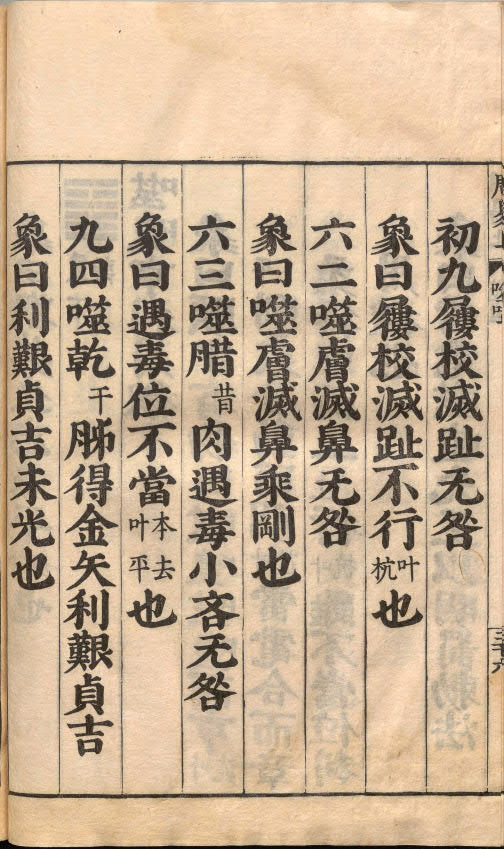 初九屨校滅趾无咎
象曰屨校滅趾不行叶杭也
六二噬膚滅鼻无咎
象曰噬膚滅鼻乘剛也
六三噬腊昔肉遇毒小吝无咎
象曰遇毒位不當本去叶平也
九四噬乾干胏得金矢利艱貞吉
象曰利艱貞吉未光也